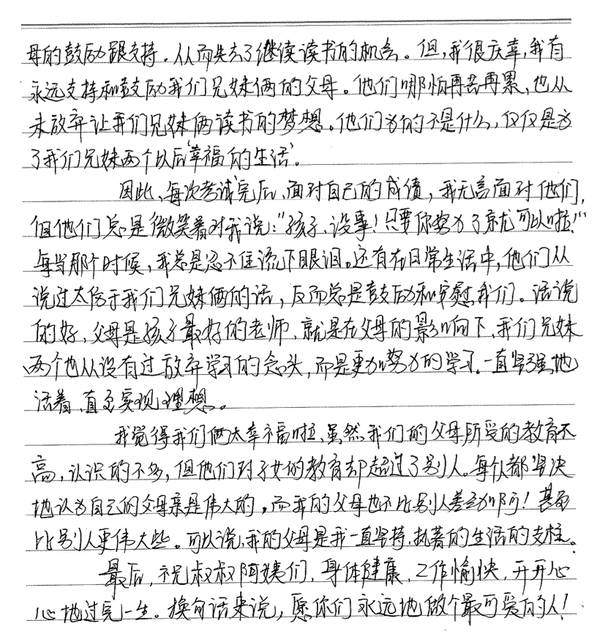 母的鼓励跟支持，从而失去了继续读书的机会。但，我很庆幸，我有
永远支持和鼓励我们兄妹俩的父母。他们哪怕再苦再累，也从
未放弃让我们兄妹俩读书的梦想。他们为的不是什么，仅仅是为
了我们兄妹两个以后'幸福'的生活'.
因此，每次考试完后，面对自己的成绩，我无言面对他们，
但他们总是微笑着对我说："孩子，没事！只要你努力了就可以啦！"
每当那个时候，我总是忍不住流下眼泪。还有在日常生活中，他们从
说过太伤于我们兄妹俩的话，反而总是鼓励和安慰我们。话说
的好，父母是孩子最好的老师，就是在父母的影响下，我们兄妹
两个也从没有过放弃学习的念头，而是更加努力的学习。一直坚强地
活着，直到实现理想。
我觉得我们俩太幸福啦，虽然我们的父母所受的教育不
高，认识的不多，但他们对子女的教育却超过了别人。每个人都坚决
地认为自己的父母亲是伟大的。而我的父母也不比别人差到哪啊！甚至
比别人更伟大些。可以说，我的父母是我一直坚持，执著的生活的支柱。
最后，祝叔叔阿姨们，身体健康，工作愉快，开开心
心地过完一生。换句话来说，愿你们永远地做个最可爱的人！